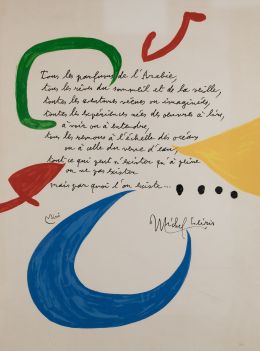 tous les parfums de l'Arabie,
tous les rêves du sommeil et de la veille,
toutes les aventures vécues ou imaginées,
toutes les expériences nées des œuvres à lire,
à voir ou à entendre,
tous les remous à l'échelle des océans
ou à celle du verre d'eau,
tout ce qui peut n'exister qu'à peine
ou ne pas exister
mais par quoi l'on existe...
Miró
Michel Leiris